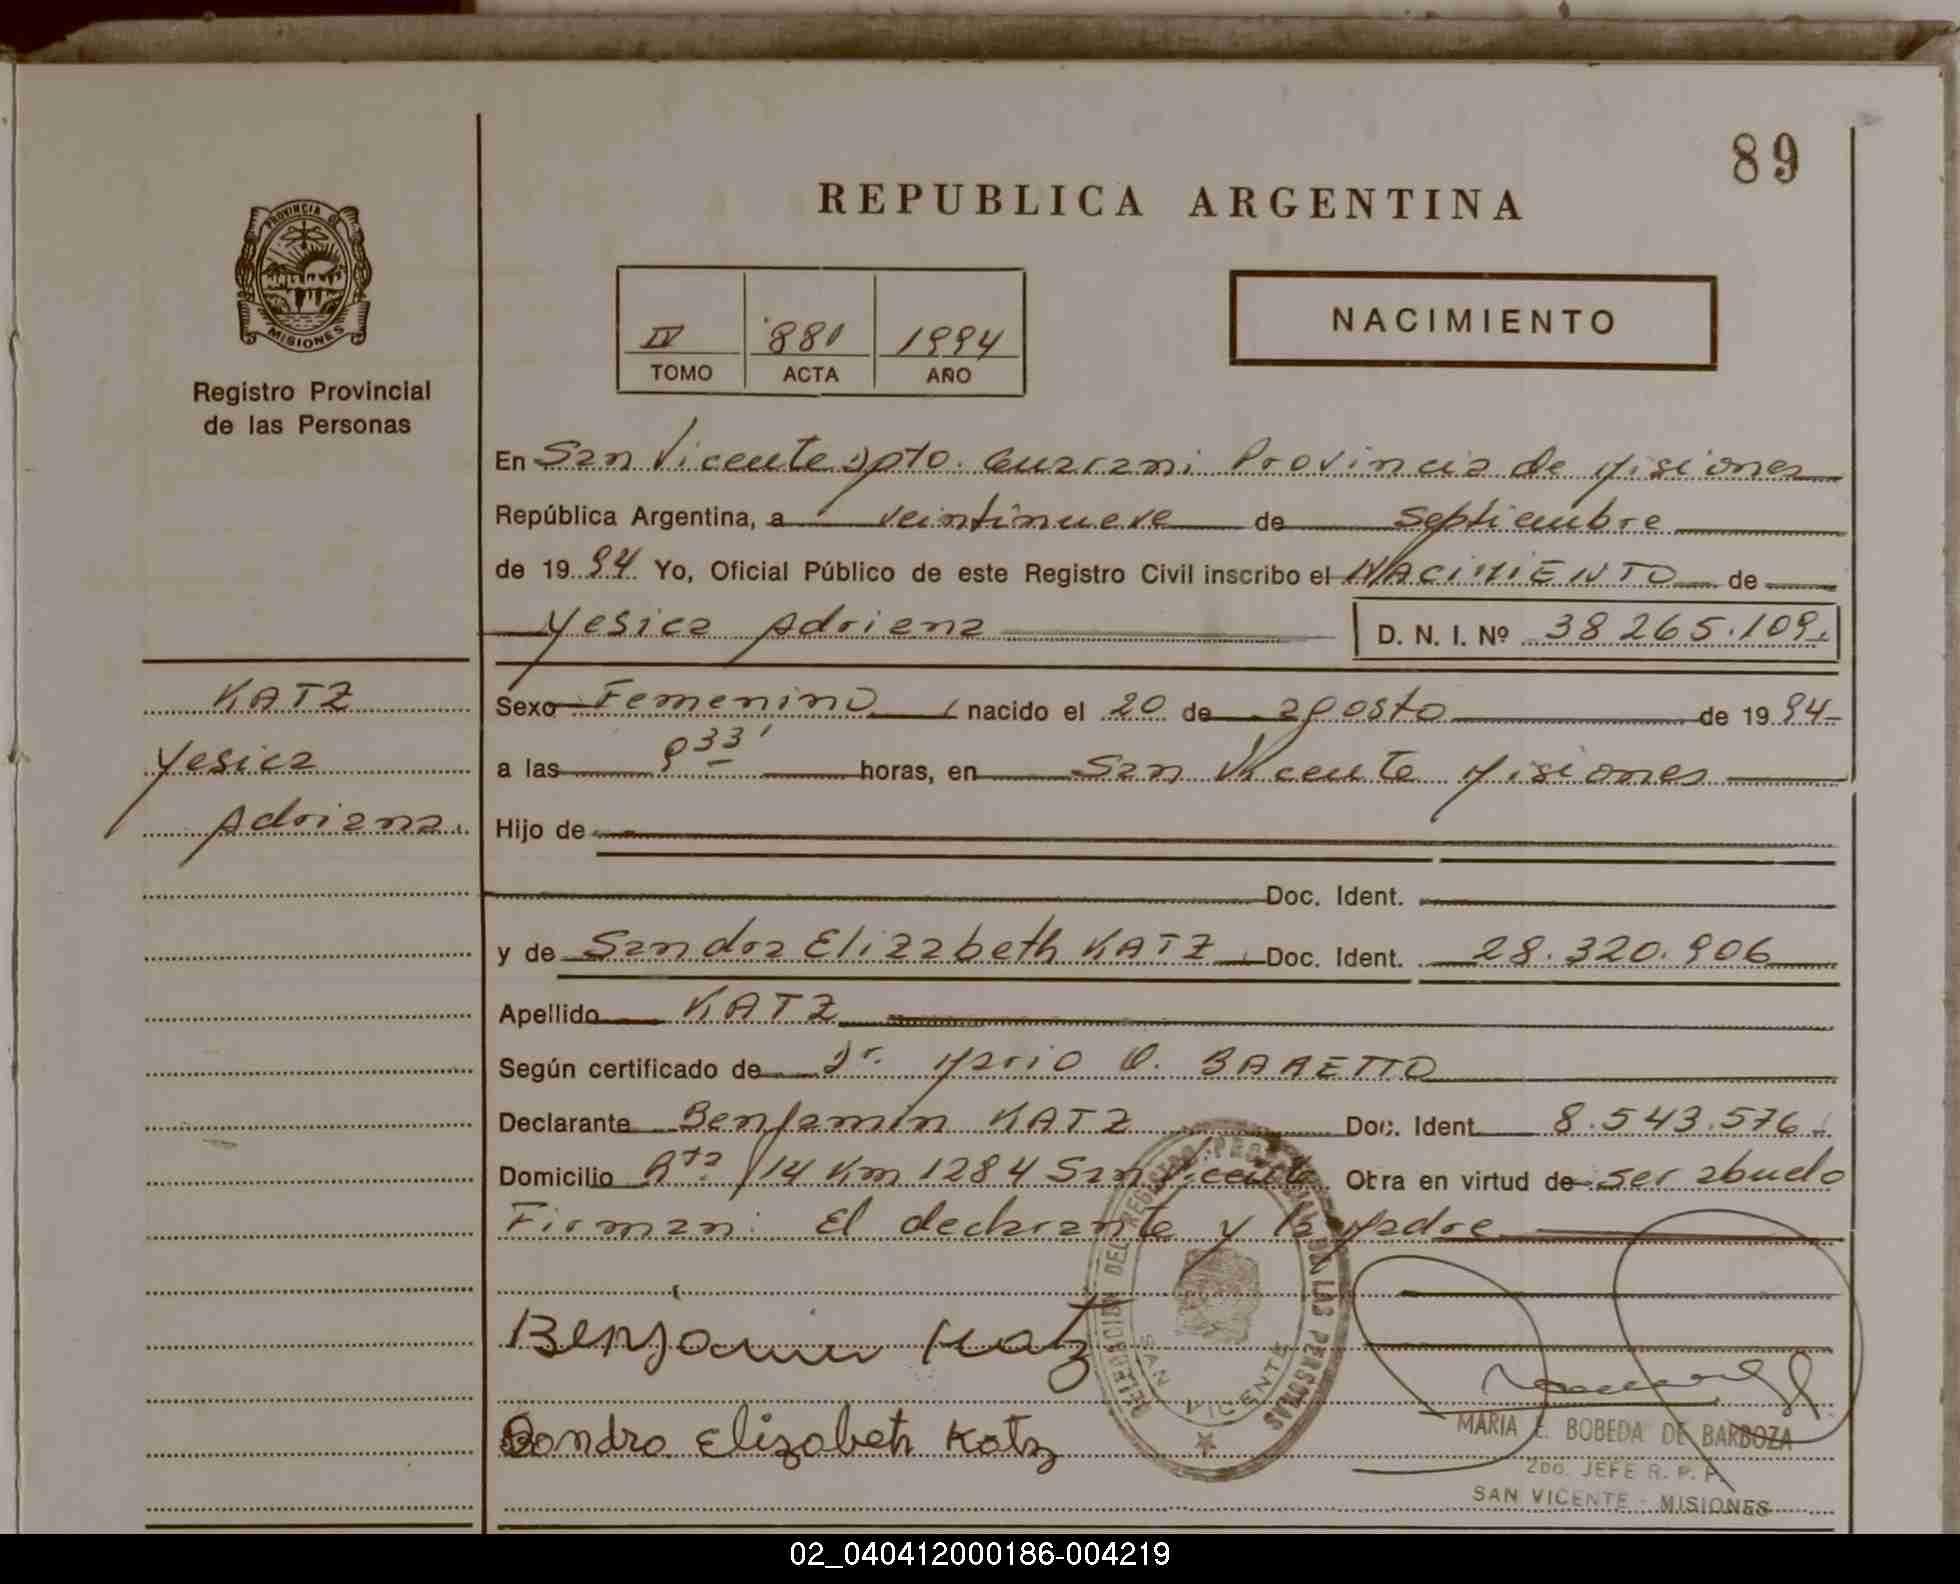 89
REPUBLICA ARGENTINA
PROVINCIA DE
MISIONES
Registro Provincial
de las Personas
IV 880 1994
TOMO ACTA AÑO
NACIMIENTO
En San Vicente Dpto. Guarani Provincia de Misiones
República Argentina, a veintinueve de septiembre
de 1994 Yo, Oficial Público de este Registro Civil inscribo el NACIMIENTO de
Yesica Adriana D. N. I. Nº 38 265.109
KATZ
Yesica
Adriana.
Sexo Femenino nacido el 20 de agosto de 1994
a las 9 33' horas, en San Vicente Misiones
Hijo de
Doc. Ident.
y de Sandra Elizabeth KATZ Doc. Ident. 28.320.906
Apellido KATZ
Según certificado de Dr. Mario O. BARETTO
Declarante Benjamin KATZ Doc. Ident. 8.543.576
Domicilio Rta 14 Km 1284 San Vicente Obra en virtud de ser abuelo
Firman: El declarante y la Madre
Benjamin Katz
Sandra Elizabeth Katz
DELEGACION DEL REGISTRO PROVINCIAL DE LAS PERSONAS
SAN VICENTE
MARIA E. BOBEDA DE BARBOZA
2DO. JEFE R. P. P.
SAN VICENTE - MISIONES
02_040412000186-004219